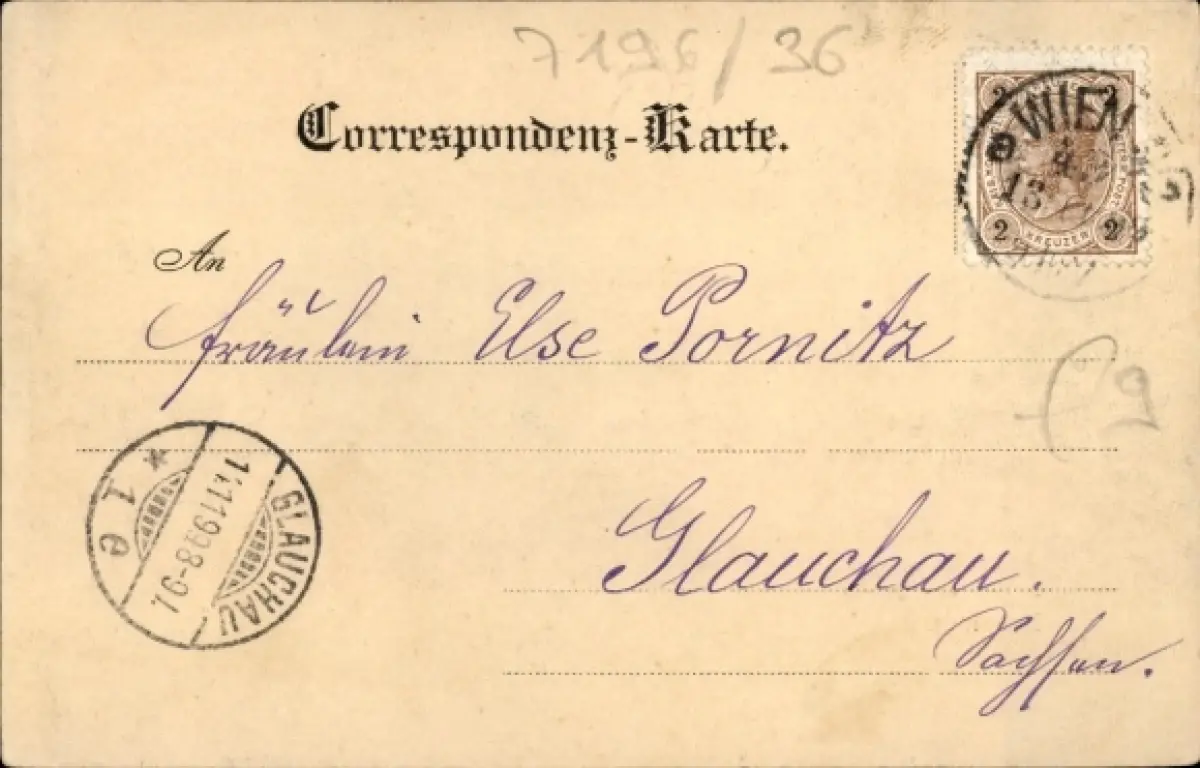 7196/36
Correspondenz-Karte.
2 2
WIEN
13
2 KREUZER 2
An
Fräulein Else Pornitz
9
GLAUCHAU
* 1 e
11.11.99.8-9V.
Glauchau.
Sachsen.